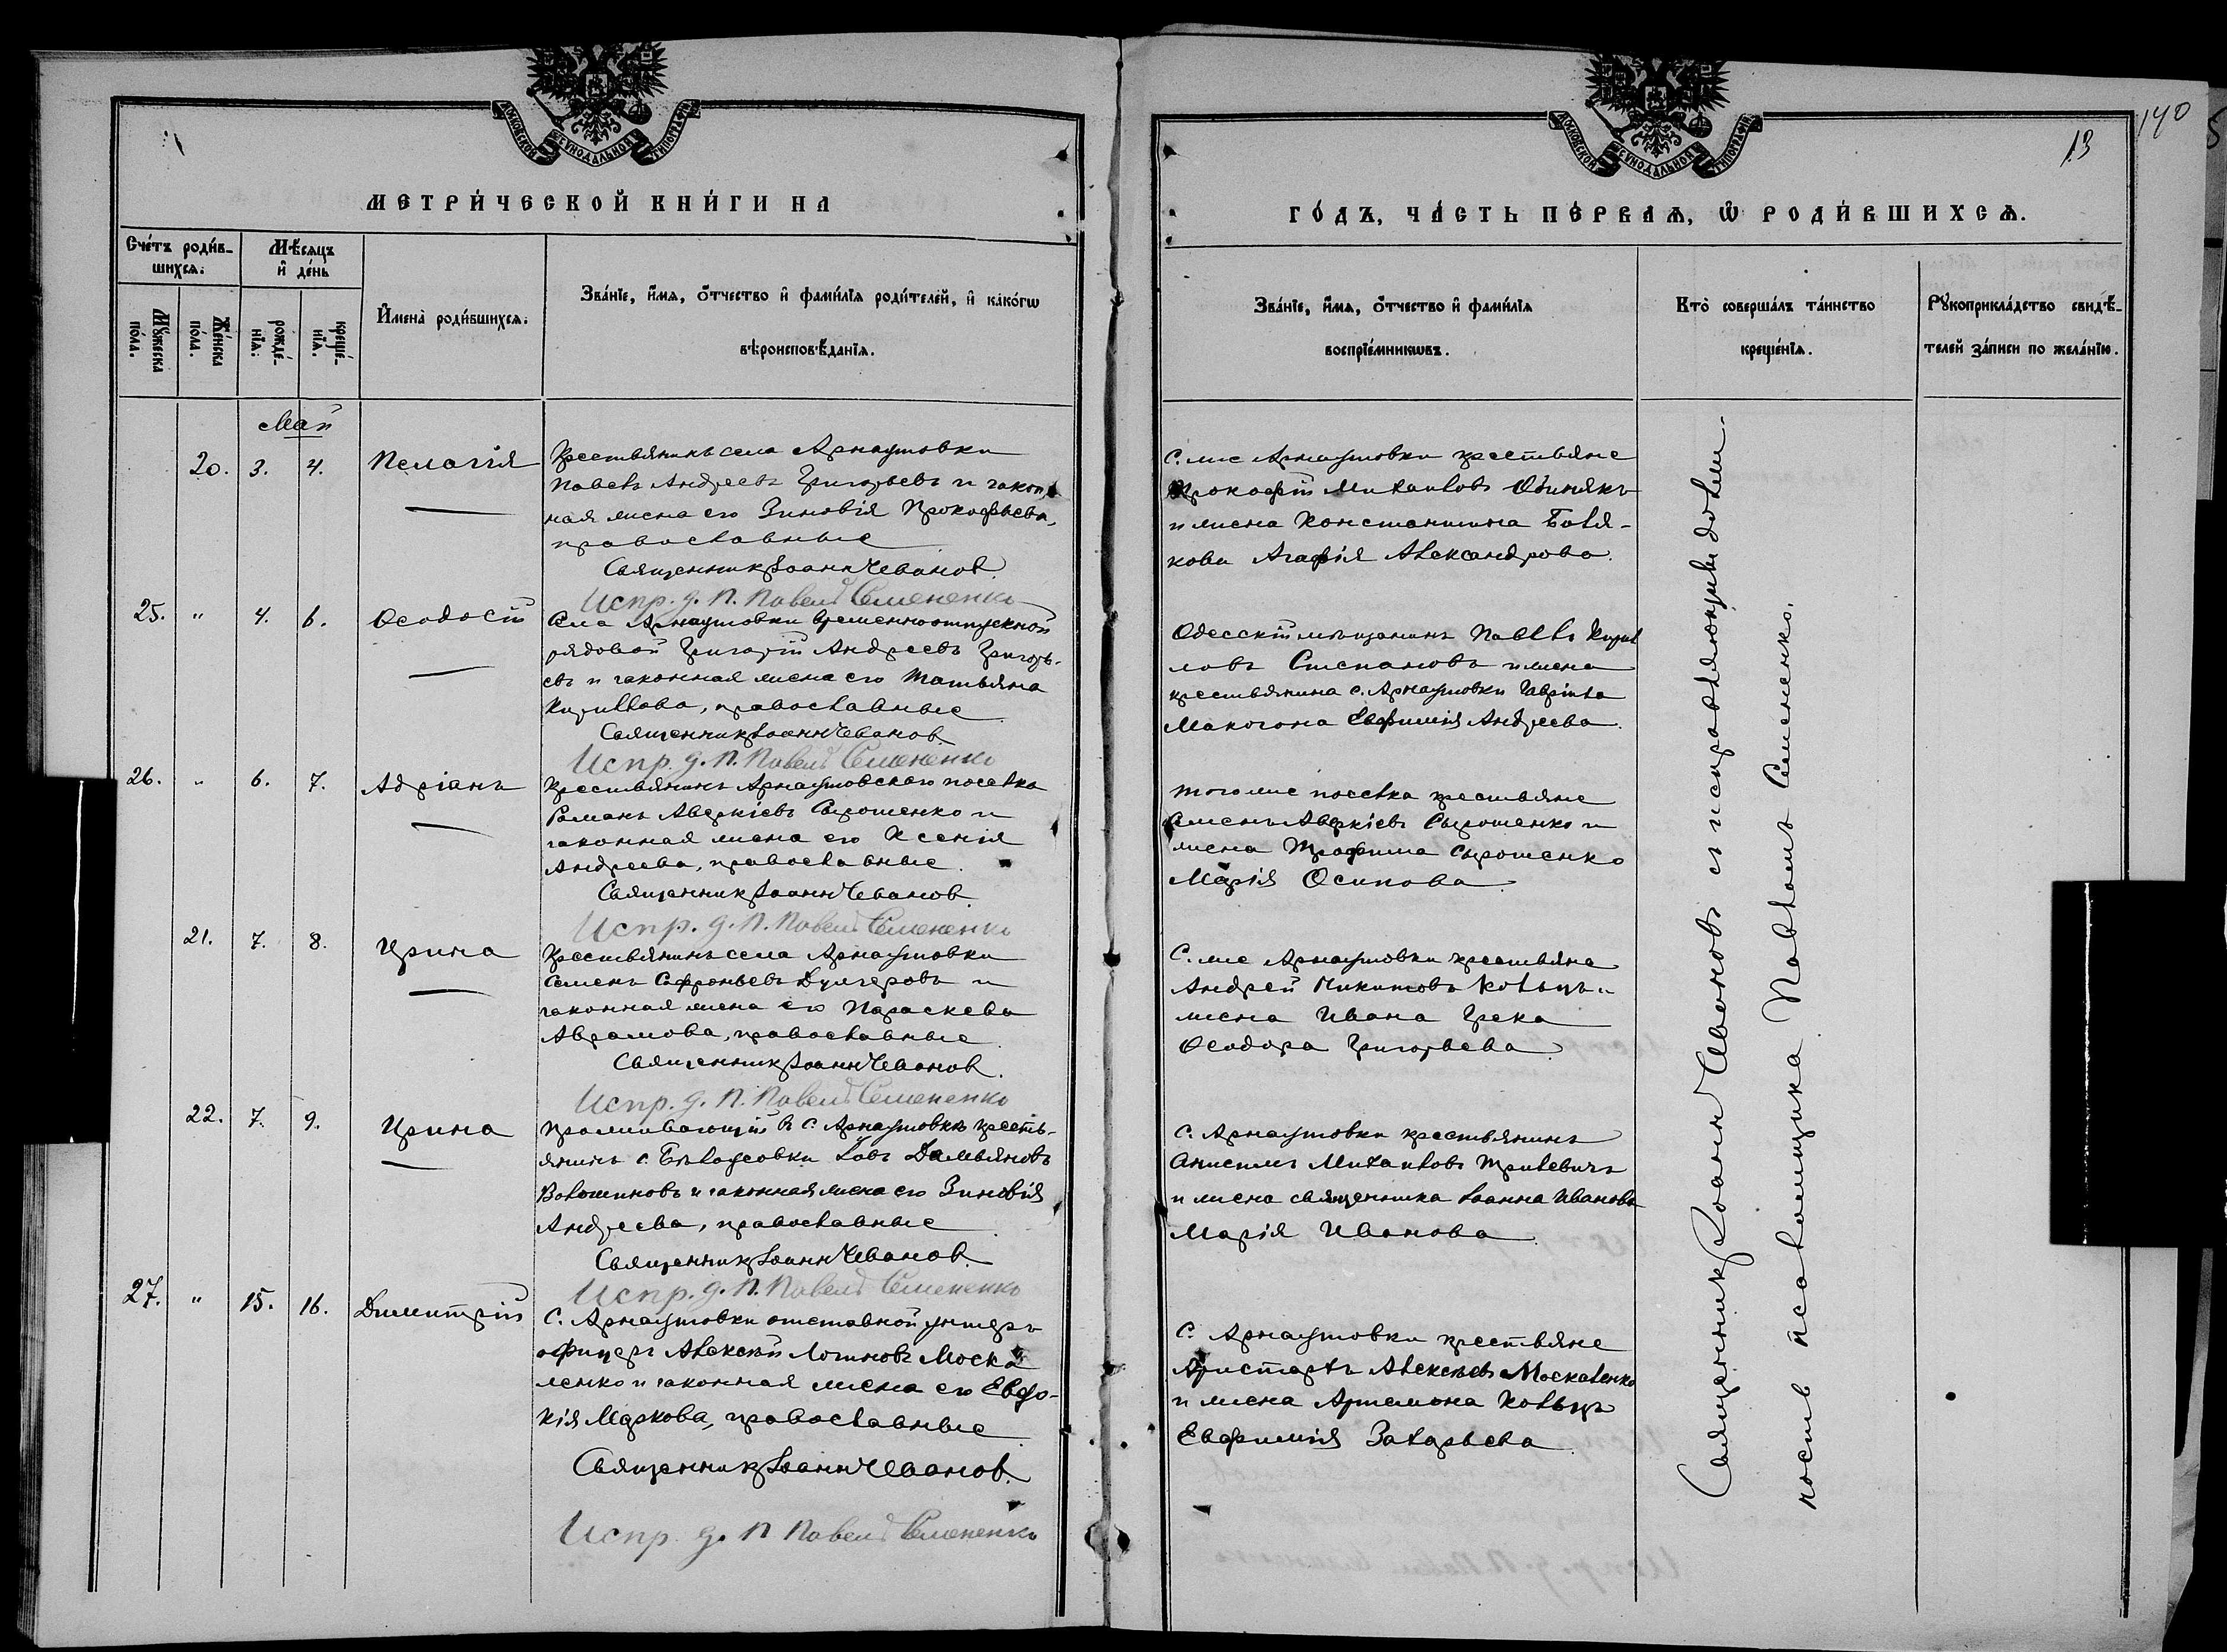 140
13
МОСКОВСКОЙ СѴНОДАЛЬНОЙ ТИПОГРАФІИ
МОСКОВСКОЙ СѴНОДАЛЬНОЙ ТИПОГРАФІИ
МЕТРИ́ЧЕСКОЙ КНИ́ГИ НА
ГО́ДЪ, ЧА́СТЬ ПЕ́РВАѦ, Ѡ РОДИ́ВШИХСѦ.
Сче́тъ роди́в-
шихсѧ.
Мѣ́сяцъ
и҆ де́нь
Му́жеска по́ла.
Же́нска по́ла.
рожде́-
нїѧ.
креще́-
нїѧ.
И҆мена̀ роди́вшихсѧ.
Зва́нїе, и҆́мѧ, ѻ҆́тчество и҆ фами́лїѧ роди́телей, и҆ како́гѡ
вѣроисповѣ́данїѧ.
Зва́нїе, и҆́мѧ, ѻ҆́тчество и҆ фами́лїѧ
воспрїе́мникѡвъ.
Кто̀ соверша́лъ та́инство
креще́нїѧ.
Рꙋкоприкла́дство свидѣ́-
телей за́писи по жела́нїю.
Май
20. 3. 4. Пелагія
Крестьянинъ села Арнаутовки
Павелъ Андреевъ Григорьевъ и закон-
ная жена его Зиновія Прокофьева,
православные
Священникъ Іоаннъ Чебанов.
Испр. д. П. Павелъ Семененко
С. же Арнаутовки крестьяне
Прокофій Михаиловъ
и жена Константина Боля-
кова Агафія Александрова.
25. " 4. 6. Ѳеодосій
Села Арнаутовки временноотпускной
рядовой Григорій Андреевъ Григорь-
евъ и законная жена его Татьяна
Кириллова, православные
Священникъ Іоаннъ Чебанов.
Испр. д. П. Павелъ Семененко
Одесскій мѣщанинъ Павелъ Кирил
ловъ Степановъ и жена
крестьянина с. Арнаутовки Гавріила
Макогона Евфимія Андреева.
26. " 6. 7. Адріанъ
Крестьянинъ Арнаутовскаго поселка
Романъ Аверкіевъ Сырошенко и
законная жена его Ксенія
Андреева, православные.
Священникъ Іоаннъ Чебанов.
Испр. д. П. Павелъ Семененко
Того же поселка крестьяне
Семенъ Аверкіевъ Сырошенко и
жена Трофима Сырошенко
Марія Осипова.
21. 7. 8. Ирина
Крестьянинъ села Арнаутовки
Семенъ Софроньевъ Дулгеровъ и
законная жена его Параскева
Аврамова, православные.
Священникъ Іоаннъ Чебанов.
Испр. д. П. Павелъ Семененко
С. же Арнаутовки крестьяне
Андрей Никитовъ Кольцъ и
жена Ивана Грека
Ѳеодора Григорьева.
22. 7. 9. Ирина
Проживающій въ с. Арнаутовкѣ кресть-
янинъ с. Бѣлоусовки Іовъ Дамьяновъ
Волошиновъ и законная жена его Зиновія
Андреева, православные.
Священникъ Іоаннъ Чебанов.
Испр. д. П. Павелъ Семененко
С. Арнаутовки крестьянинъ
Анисимъ Михаиловъ Трилевичъ
и жена священника Іоанна Иванова
Марія Иванова.
27. " 15. 16. Димитрій
С. Арнаутовки отставной унтеръ
офицеръ Алексѣй Логиновъ Моска
ленко и законная жена его Евдо-
кія Маркова, православные.
Священникъ Іоаннъ Чебанов.
Испр. д. П Павелъ Семененко
С. Арнаутовки крестьяне
Аристархъ Алексѣевъ Москаленко
и жена Артемона Кольцъ
Евфимія Захарьева.
Священникъ Іоаннъ Чебановъ съ исправляющимъ долж-
ность псаломщика Павломъ Семененко.